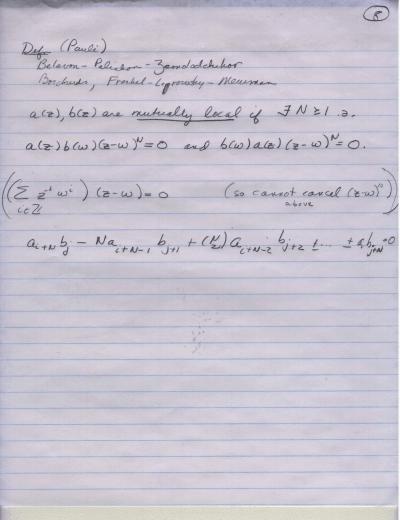 8
Defn (Pauli)
Belavin - Polyakov - Zamolodchikov
Borcherds, Frenkel - Lepowsky - Meurman
a(z), b(z) are mutually local if ∃ N ≥ 1 ∋.
a(z) b(w) (z-w)^N = 0 and b(w) a(z) (z-w)^N = 0.
((∑_{i∈ℤ} z^{-i} w^i) (z-w) = 0 (so cannot cancel (z-w)^N above))
a_{i+N} b_j - N a_{i+N-1} b_{j+1} + (N 2) a_{i+N-2} b_{j+2} ± ... ± a_i b_{j+N} = 0